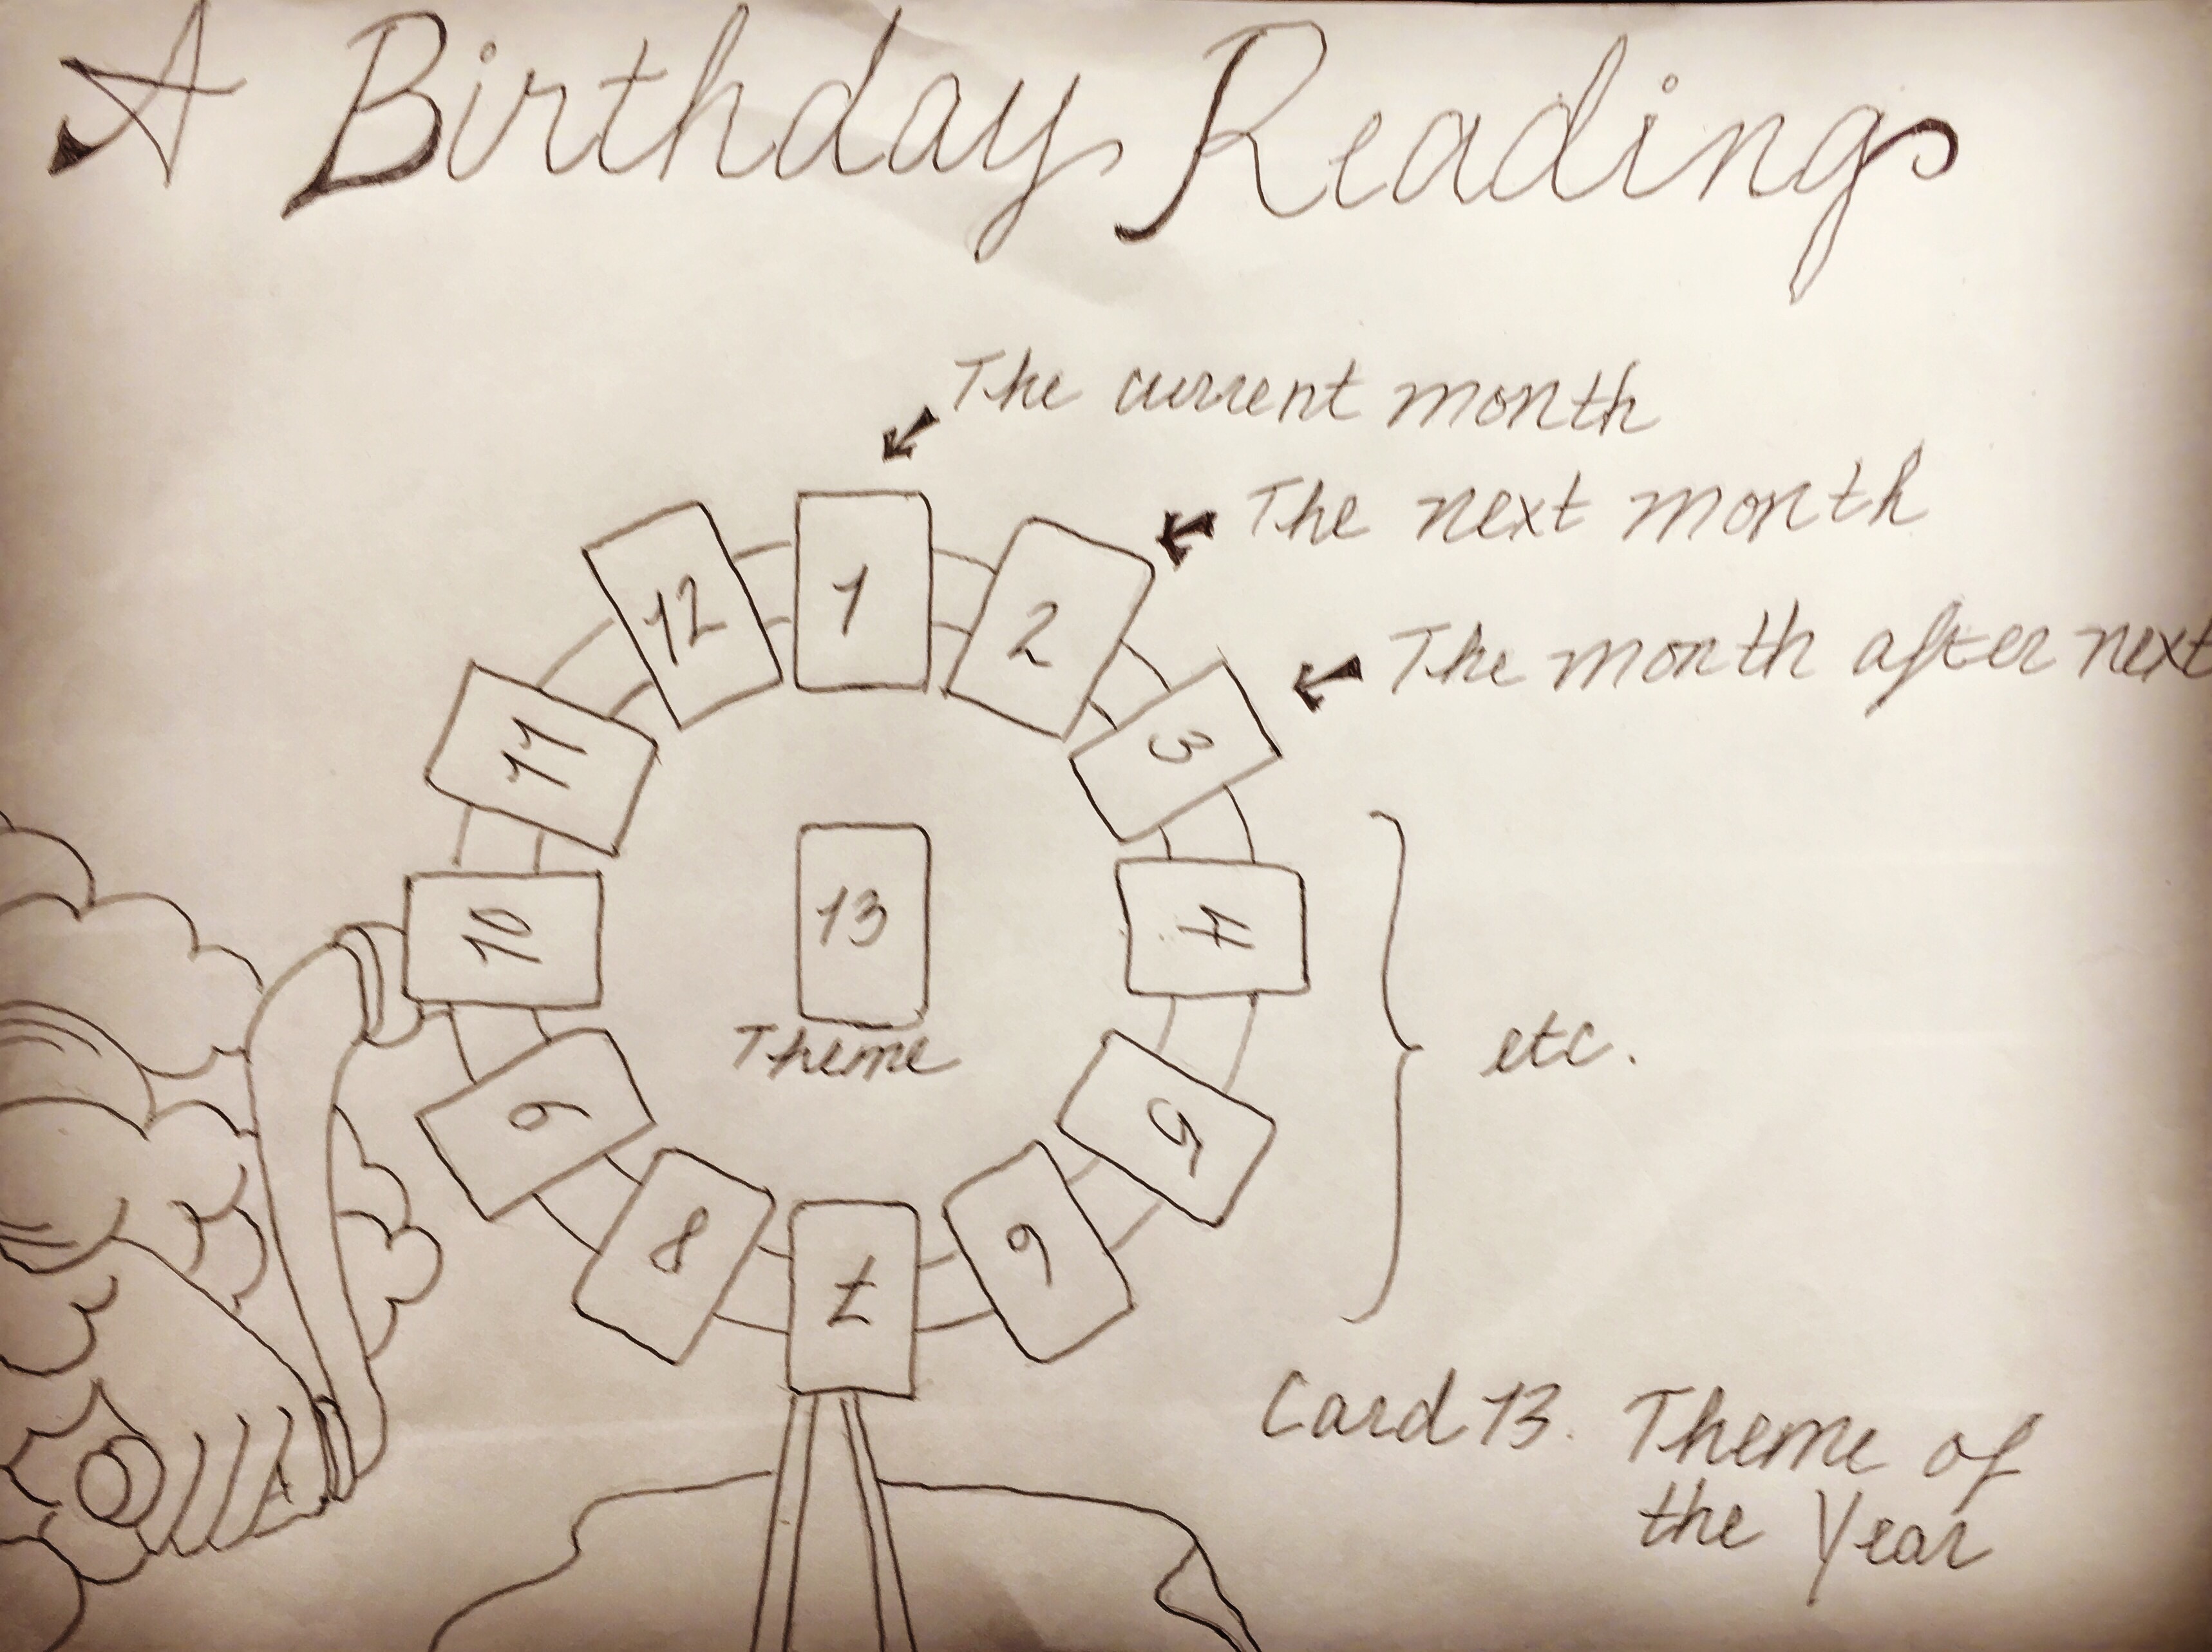 A Birthday Reading
The current month
The next month
The month after next
12 1 2
11 3
10 13 4
Theme
etc.
9 5
8 7 6
Card 13. Theme of
the Year